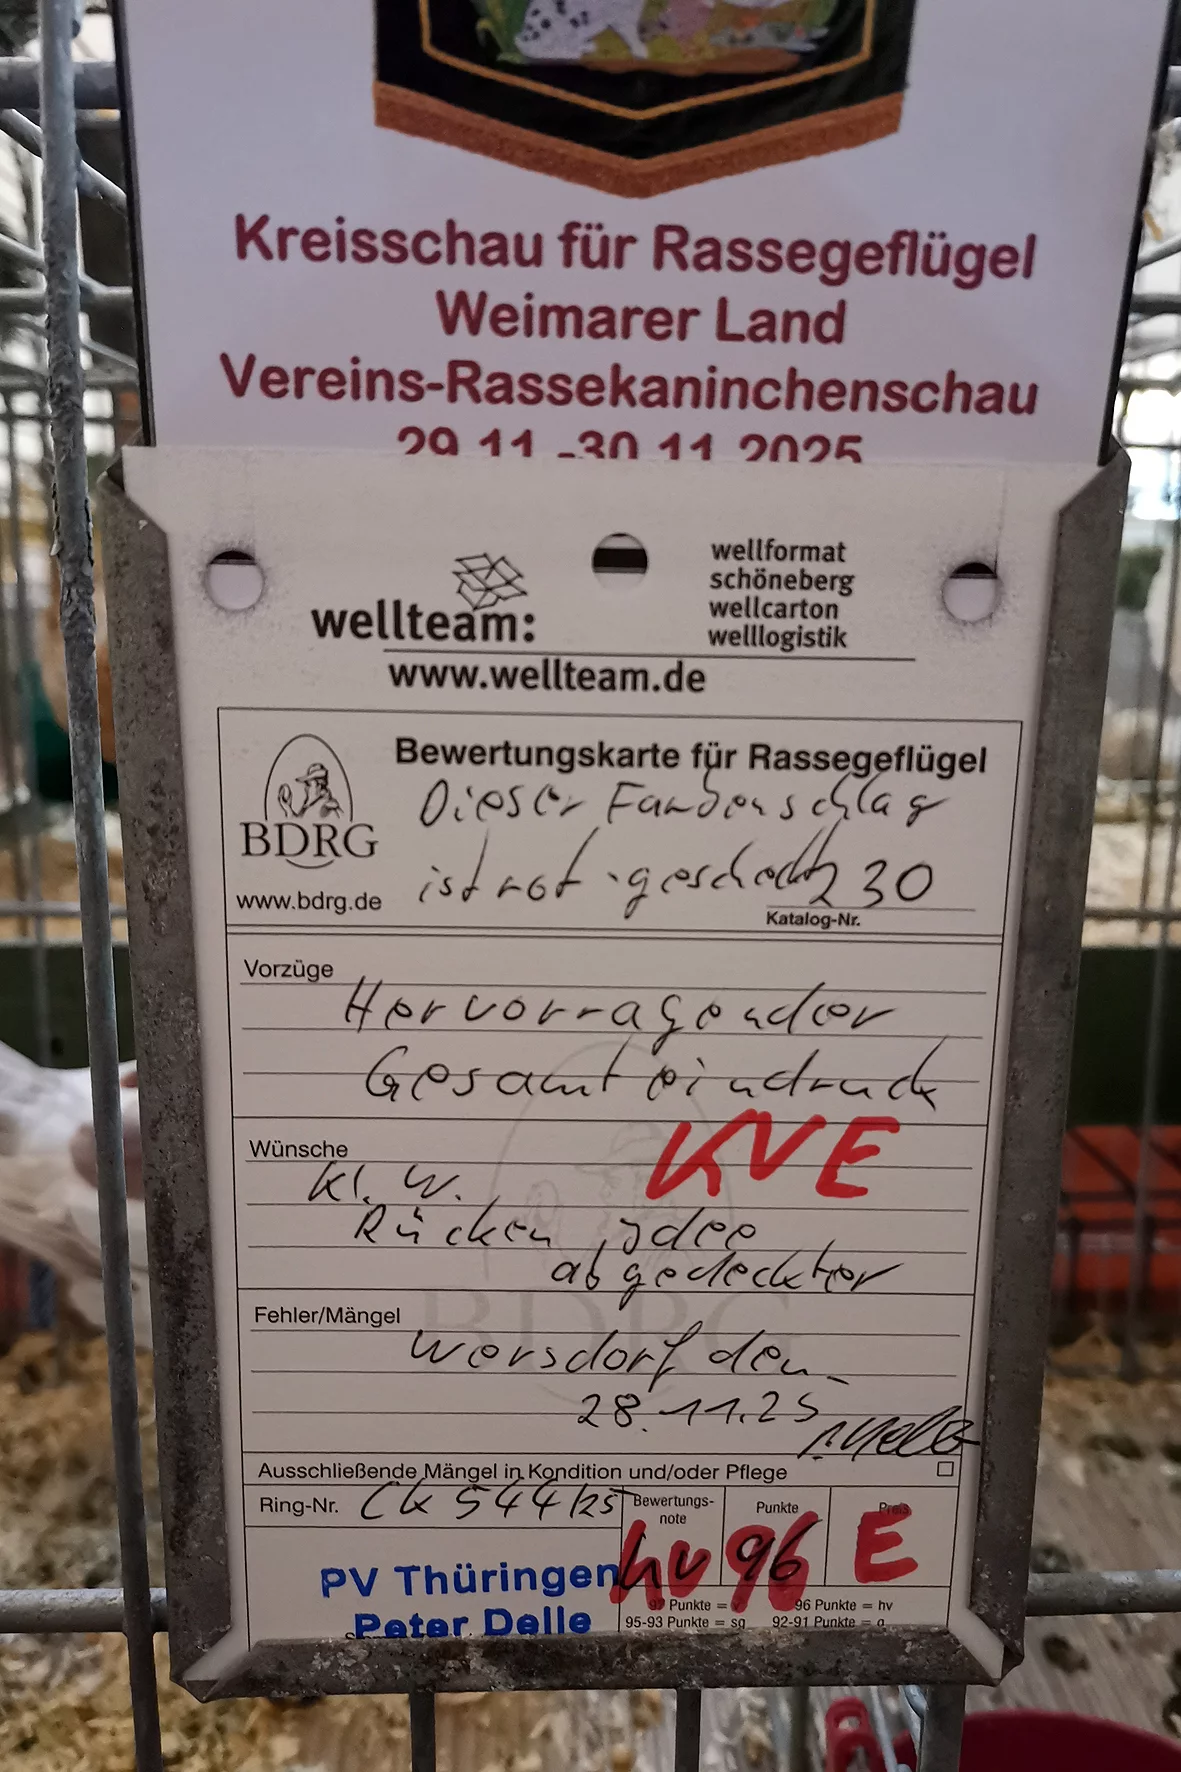 Kreisschau für Rassegeflügel
Weimarer Land
Vereins-Rassekaninchenschau
29.11.-30.11.2025
wellteam:
www.wellteam.de
wellformat
schöneberg
wellcarton
welllogistik
BDRG
www.bdrg.de
Bewertungskarte für Rassegeflügel
Dieser Farbenschlag
ist rot-gescheckt
230
Katalog-Nr.
Vorzüge
Hervorragender
Gesamteindruck
KVE
Wünsche
Kl. W.
Rücken, Idee
abgedeckter
Fehler/Mängel
Wersdorf den
28.11.25
Ausschließende Mängel in Kondition und/oder Pflege
Ring-Nr. CK 544/25
Bewertungs-
note
hv
Punkte
96
Preis
E
PV Thüringen
Peter Delle
97 Punkte = v 96 Punkte = hv
95-93 Punkte = sg 92-91 Punkte = g
BDRG